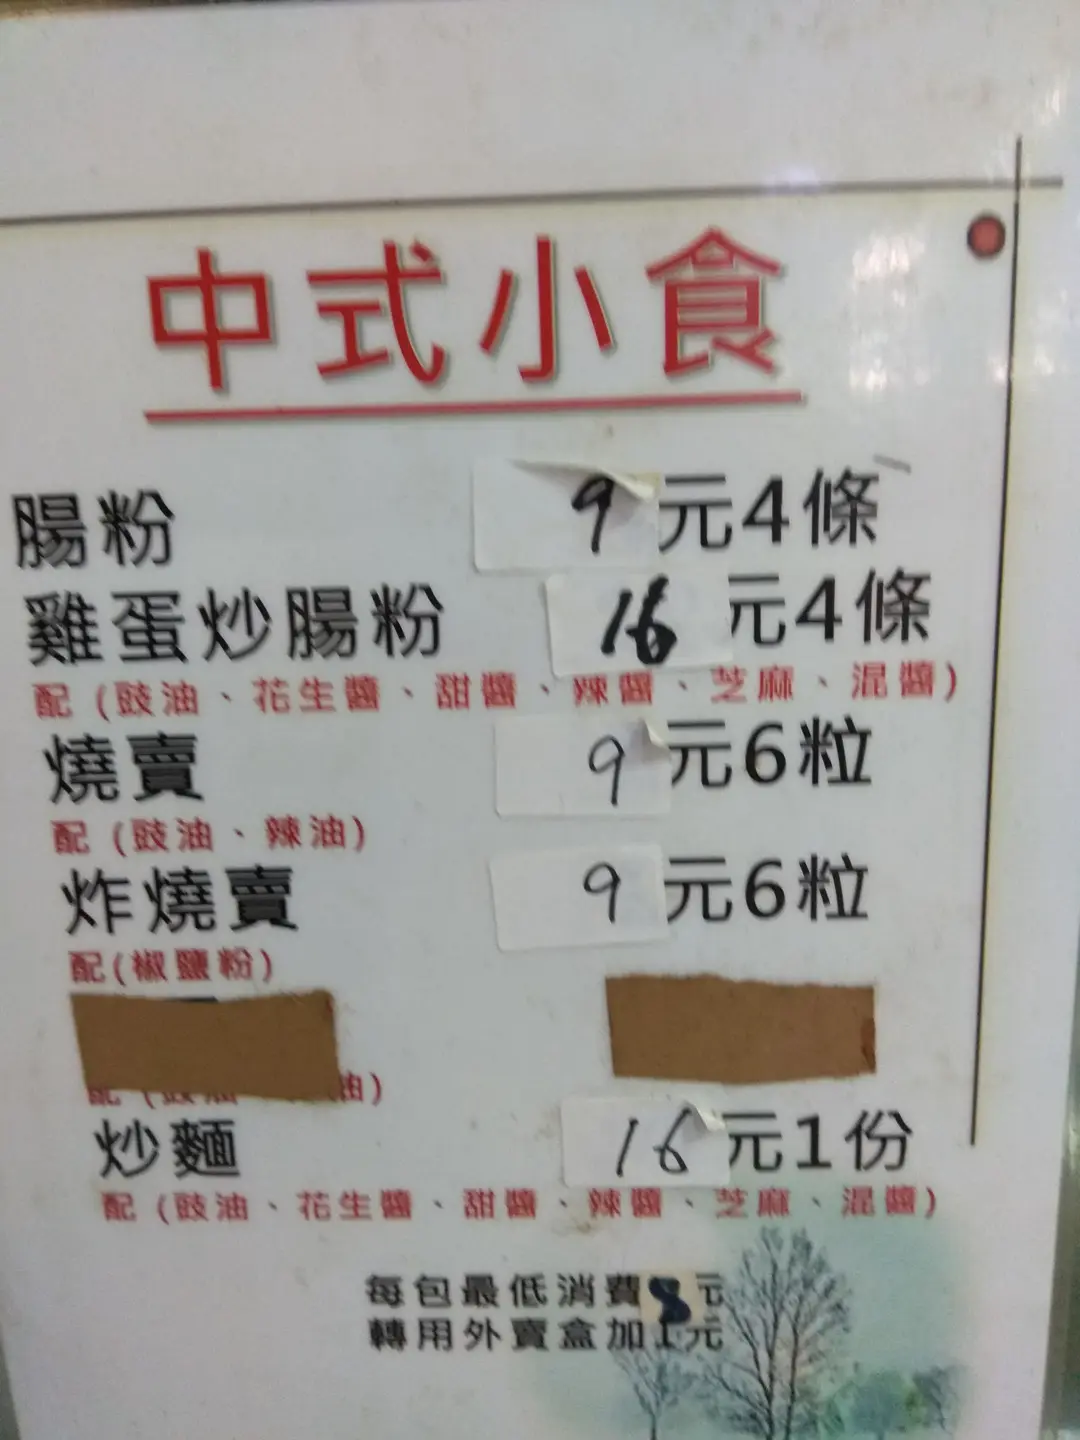 中式小食
腸粉 9元4條
雞蛋炒腸粉 16元4條
配(豉油、花生醬、甜醬、辣醬、芝麻、混醬)
燒賣 9元6粒
配(豉油、辣油)
炸燒賣 9元6粒
配(椒鹽粉)
油)
炒麵 16元1份
配(豉油、花生醬、甜醬、辣醬、芝麻、混醬)
每包最低消費8元
轉用外賣盒加1元